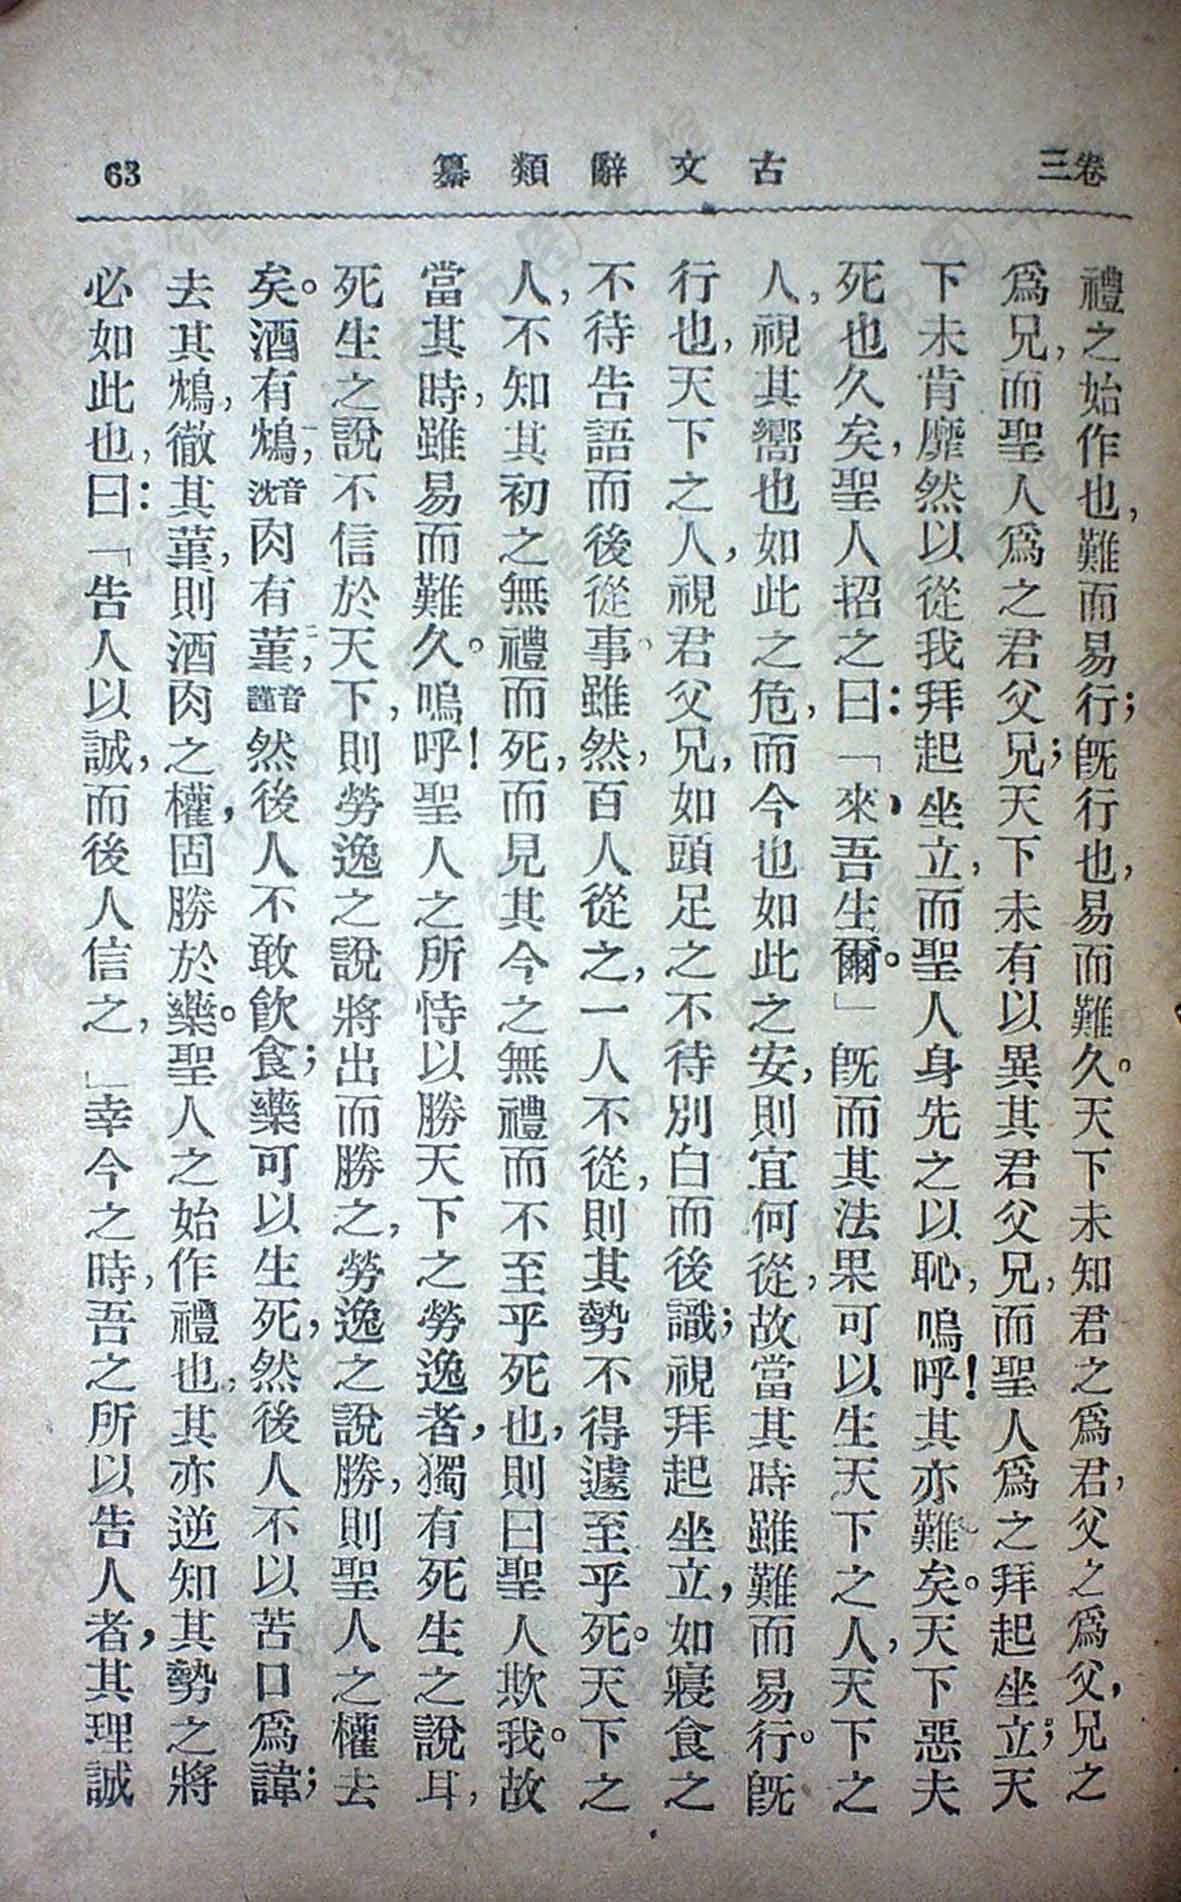 卷三
古文辭類纂
63
禮之始作也，難而易行；旣行也，易而難久。天下未知君之爲君，父之爲父，兄之
爲兄，而聖人爲之君父兄；天下未有以異其君父兄，而聖人爲之拜起坐立；天
下未肯靡然以從我拜起坐立，而聖人身先之以恥，嗚呼！其亦難矣。天下惡夫
死也久矣，聖人招之曰：「來，吾生爾。」旣而其法果可以生天下之人，天下之
人，視其嚮也如此之危，而今也如此之安，則宜何從，故當其時雖難而易行。旣
行也，天下之人，視君父兄，如頭足之不待別白而後識；視拜起坐立，如寢食之
不待告語而後從事。雖然，百人從之，一人不從，則其勢不得遽至乎死。天下之
人，不知其初之無禮而死，而見其今之無禮而不至乎死也，則曰聖人欺我。故
當其時，雖易而難久。嗚呼！聖人之所恃以勝天下之勞逸者，獨有死生之說耳，
死生之說不信於天下，則勞逸之說將出而勝之，勞逸之說勝，則聖人之權去
矣。酒有鴆，音沈肉有菫，音謹然後人不敢飲食；藥可以生死，然後人不以苦口爲諱；
去其鴆，徹其菫，則酒肉之權，固勝於藥。聖人之始作禮也，其亦逆知其勢之將
必如此也，曰：「告人以誠，而後人信之，」幸今之時，吾之所以告人者，其理誠